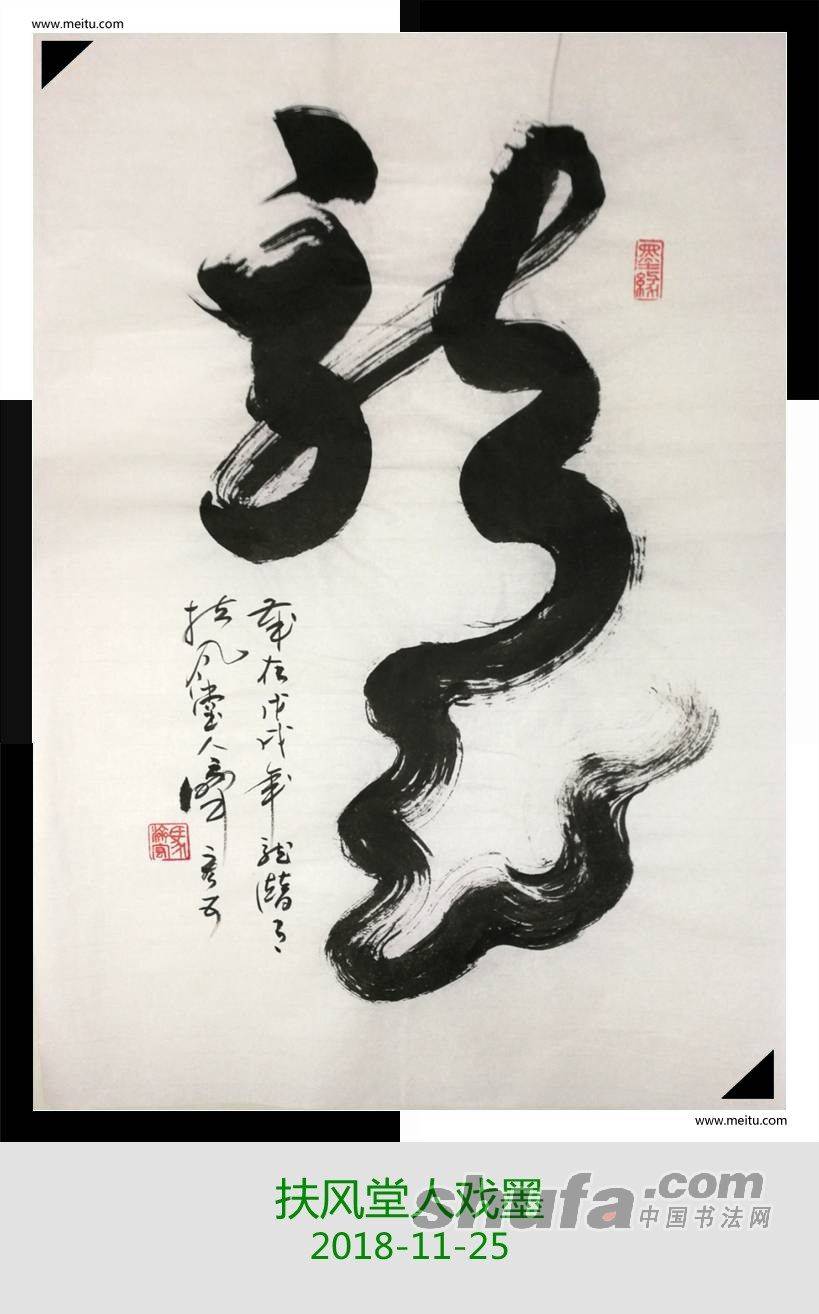 www.meitu.com
龍
墨缘
岁在戊戌年龙潜月
扶风堂人
www.meitu.com
扶风堂人戏墨
shufa.com
中国书法网
2018-11-25